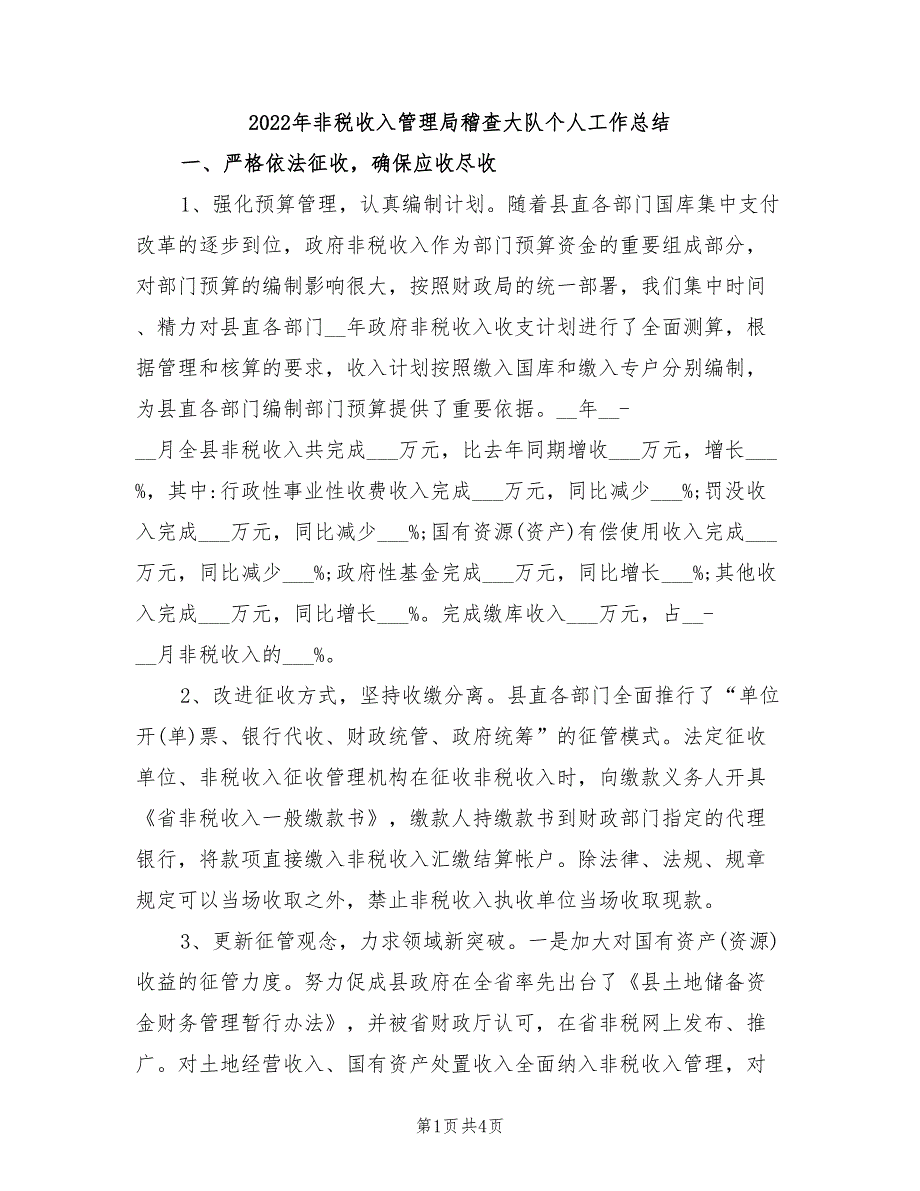 2022年非税收入管理局稽查大队个人工作总结
一、严格依法征收，确保应收尽收
1、强化预算管理，认真编制计划。随着县直各部门国库集中支付
改革的逐步到位，政府非税收入作为部门预算资金的重要组成部分，
对部门预算的编制影响很大，按照财政局的统一部署，我们集中时间
、精力对县直各部门__年政府非税收入收支计划进行了全面测算，根
据管理和核算的要求，收入计划按照缴入国库和缴入专户分别编制，
为县直各部门编制部门预算提供了重要依据。__年__-
__月全县非税收入共完成___万元，比去年同期增收___万元，增长___
%，其中:行政性事业性收费收入完成___万元，同比减少___%;罚没收
入完成___万元，同比减少___%;国有资源(资产)有偿使用收入完成___
万元，同比减少___%;政府性基金完成___万元，同比增长___%;其他收
入完成___万元，同比增长___%。完成缴库收入___万元，占__-
__月非税收入的___%。
2、改进征收方式，坚持收缴分离。县直各部门全面推行了“单位
开(单)票、银行代收、财政统管、政府统筹”的征管模式。法定征收
单位、非税收入征收管理机构在征收非税收入时，向缴款义务人开具
《省非税收入一般缴款书》，缴款人持缴款书到财政部门指定的代理
银行，将款项直接缴入非税收入汇缴结算帐户。除法律、法规、规章
规定可以当场收取之外，禁止非税收入执收单位当场收取现款。
3、更新征管观念，力求领域新突破。一是加大对国有资产(资源)
收益的征管力度。努力促成县政府在全省率先出台了《县土地储备资
金财务管理暂行办法》，并被省财政厅认可，在省非税网上发布、推
广。对土地经营收入、国有资产处置收入全面纳入非税收入管理，对
第1页共4页